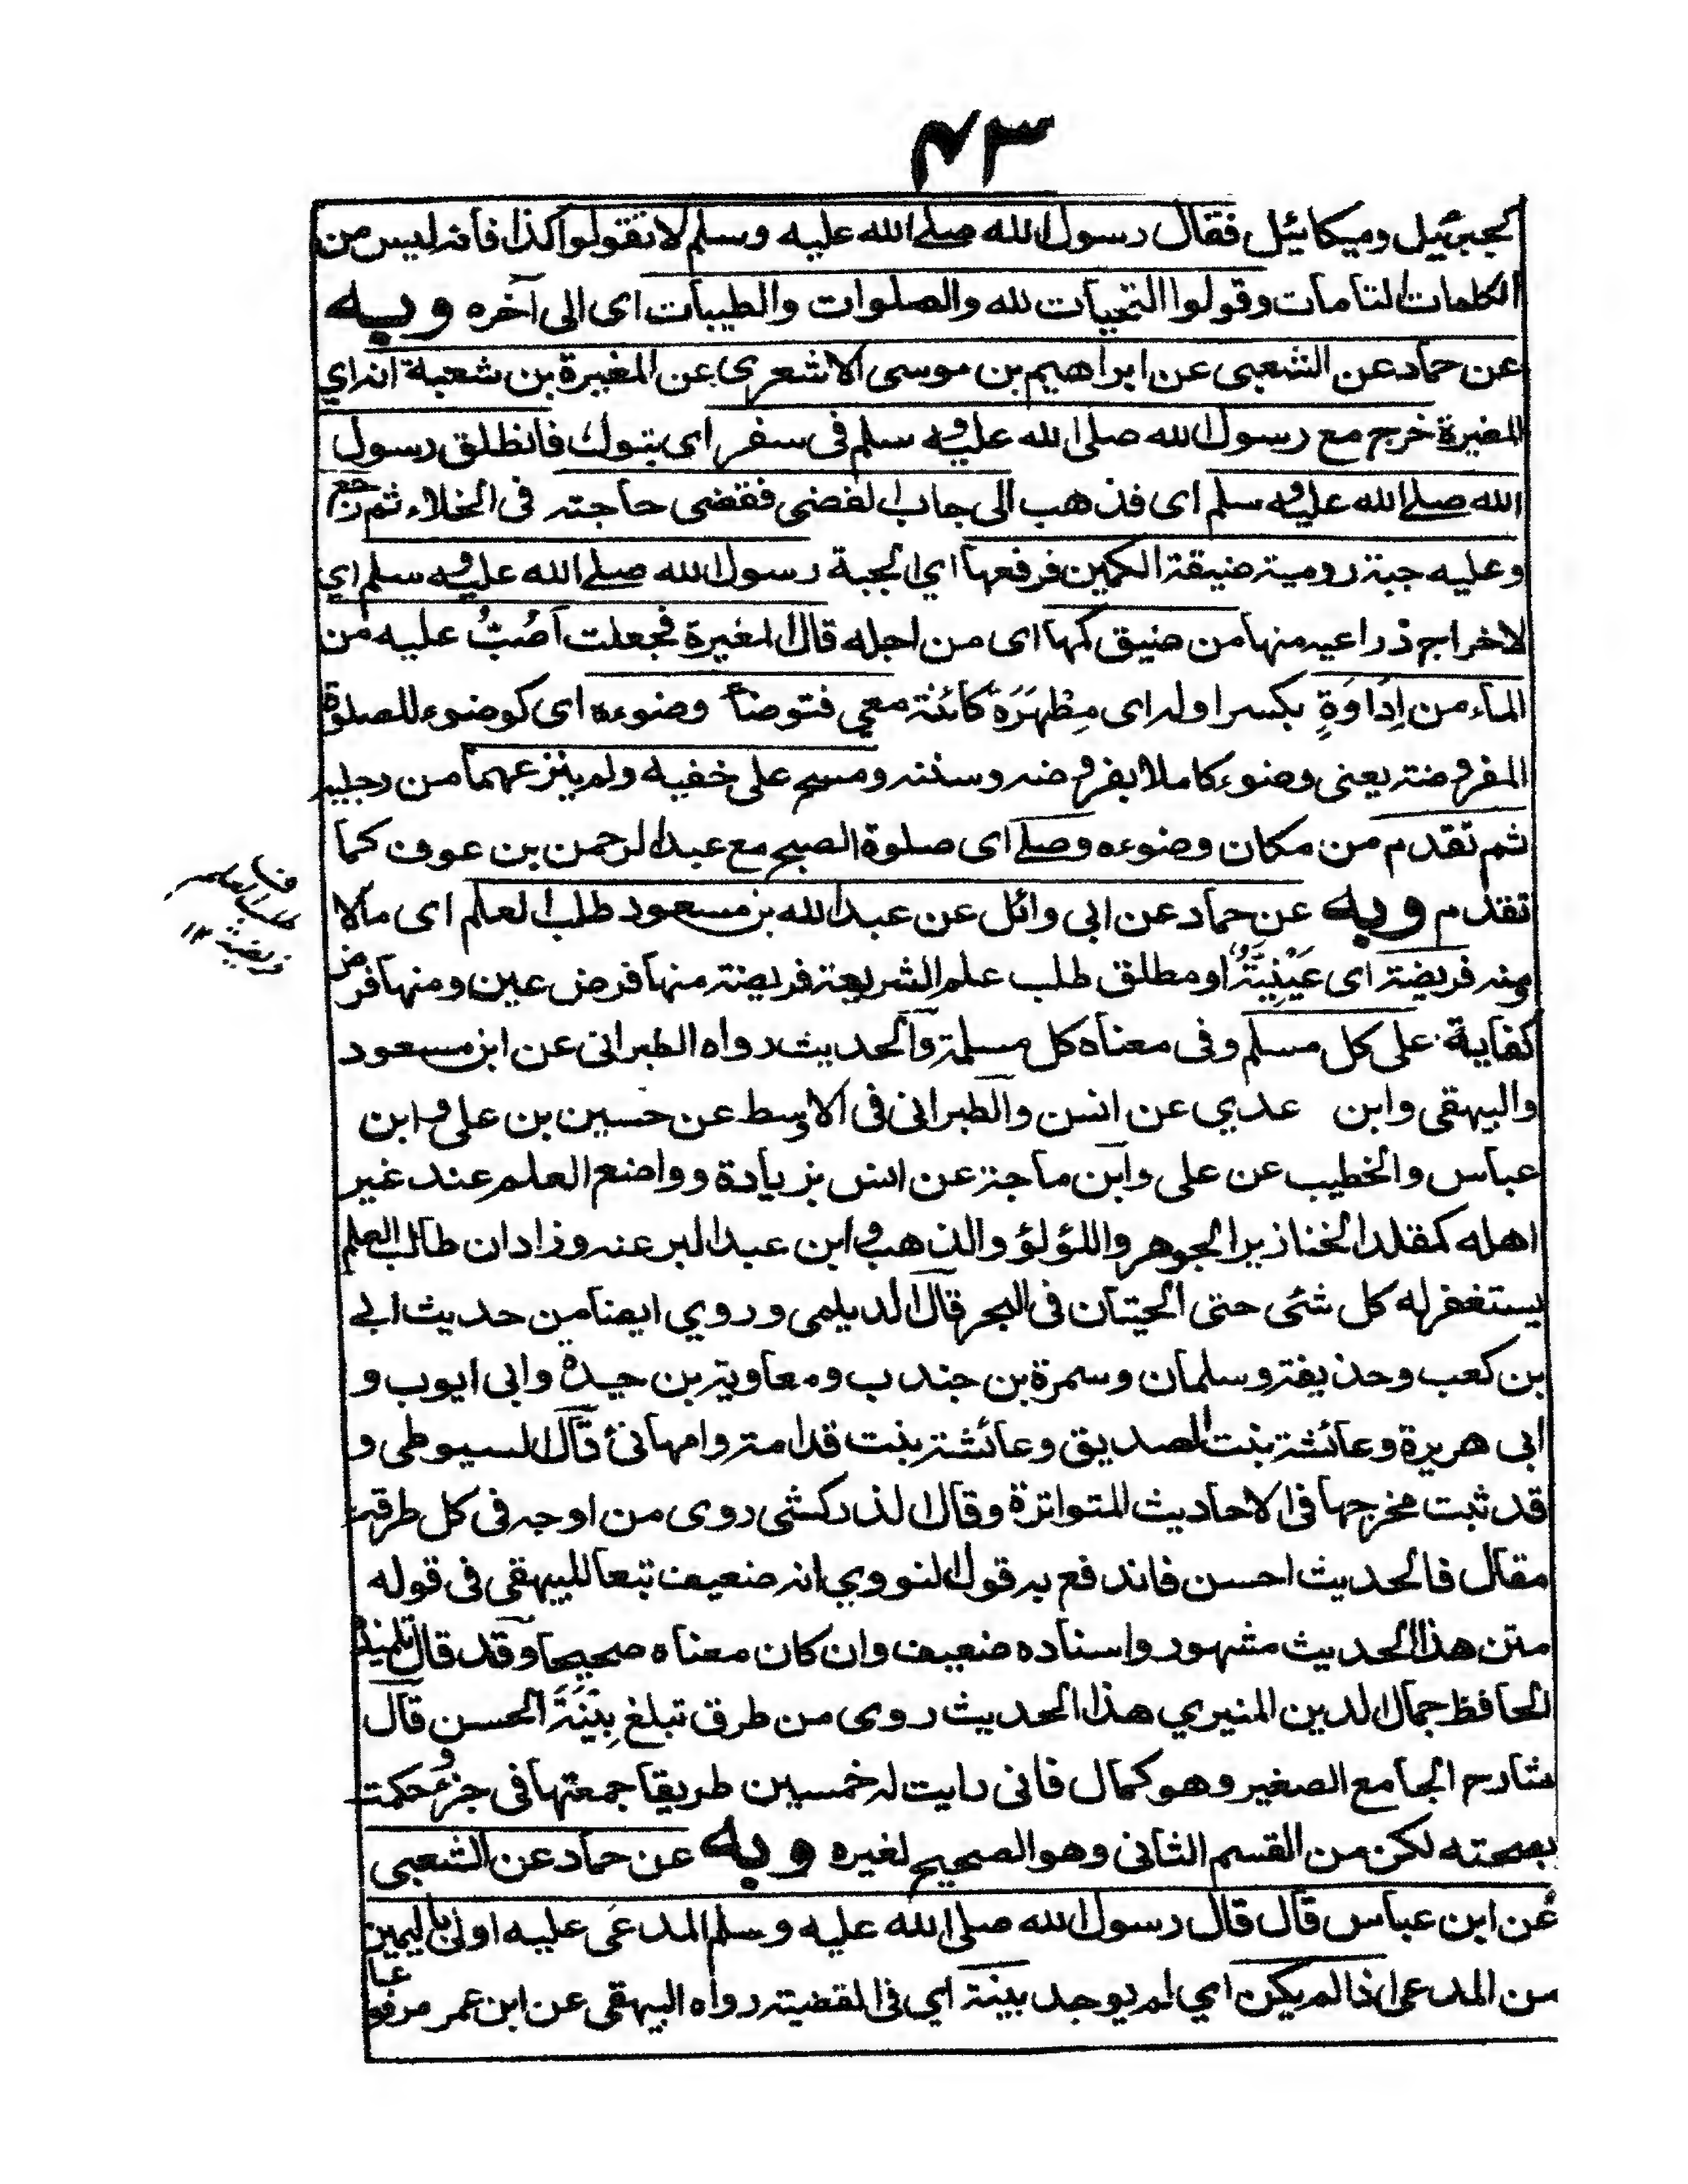 ٤٣
كجبرئيل وميكائيل فقال رسول الله صلے الله عليه وسلم لا تقولوا كذا فانه ليس من
الكلمات التامات وقولوا التحيات لله والصلوات والطيبات اى الى آخره وبه
عن حماد عن الشعبى عن ابراهيم بن موسى الاشعرى عن المغيرة بن شعبة انه اي
المغيرة خرج مع رسول الله صلى الله عليه وسلم فى سفر اى بتوك فانطلق رسول
الله صلے الله عليه وسلم اى فذهب الى جاب لفضى فقضى حاجته فى الخلاء ثم رجع
وعليه جبة رومية ضيقة الكمين فرفعها اي الجبة رسول الله صلے الله عليه وسلم اي
لاخراج ذراعيه منها من ضيق كمها اى من اجله قال المغيرة فجعلت اَصُبُّ عليه من
الماء من اِدَاوَةٍ بكسر اوله اى مِطْهَرَة كائنة معي فتوضأ وضوءه اى كوضوء للصلوة
المفروضة يعنى وضوء كاملا بفروضه وسننه ومسح على خفيه ولم ينزعهما من رجليه
ثم تقدم من مكان وضوءه وصلے اى صلوة الصبح مع عبد الرحمن بن عوف كما
تقدم وبه عن حماد عن ابى وائل عن عبد الله بن مسعود طلب العلم اى مالا
منه فريضة اى عَيْنِيَّةٌ او مطلق طلب علم الشريعة فريضة منها فرض عين ومنها فرض
كفاية على كل مسلم وفى معناه كل مسلمة والحديث رواه الطبرانى عن ابن مسعود
والبيهقى وابن عدي عن انس والطبرانى فى الاوسط عن حسين بن على وابن
عباس والخطيب عن على وابن ماجة عن انس بزيادة وواضع العلم عند غير
اهله كمقلد الخنازير الجوهر واللؤلؤ والذهب وابن عبد البر عنه وزاد ان طالب العلم
يستغفر له كل شئى حتى الحيتان فى البحر قال الديلمى وروي ايضا من حديث ابے
بن كعب وحذيفة وسلمان وسمرة بن جندب ومعاوية بن حيدة وابى ايوب و
ابى هريرة وعائشة بنت الصديق وعائشة بنت قدامة وام هانئ قال السيوطى و
قد ثبت مخرجها فى الاحاديث المتواترة وقال الذركشى روى من اوجه فى كل طرقه
مقال فالحديث احسن فاندفع به قول النووي انه ضعيف تبعا للبيهقى فى قوله
متن هذا الحديث مشهور واسناده ضعيف وان كان معناه صحيحا وقد قال تلميذه
الحافظ جمال الدين المنيري هذا الحديث روى من طرق تبلغ بِيَّنَةَ الحسن قال
شارح الجامع الصغير وهو كمال فانى رايت له خمسين طريقا جمعتها فى جزء وحكمت
بصحته لكن من القسم الثانى وهو الصحيح لغيره وبه عن حماد عن الشعبى
عن ابن عباس قال قال رسول الله صلى الله عليه وسلم المدعى عليه اولى باليمين
من المدعى اذا لم يكن اي لم يوجد بينة اي فى القضية رواه البيهقى عن ابن عمر مرفوعا
طلب العلم
فريضة ١٢